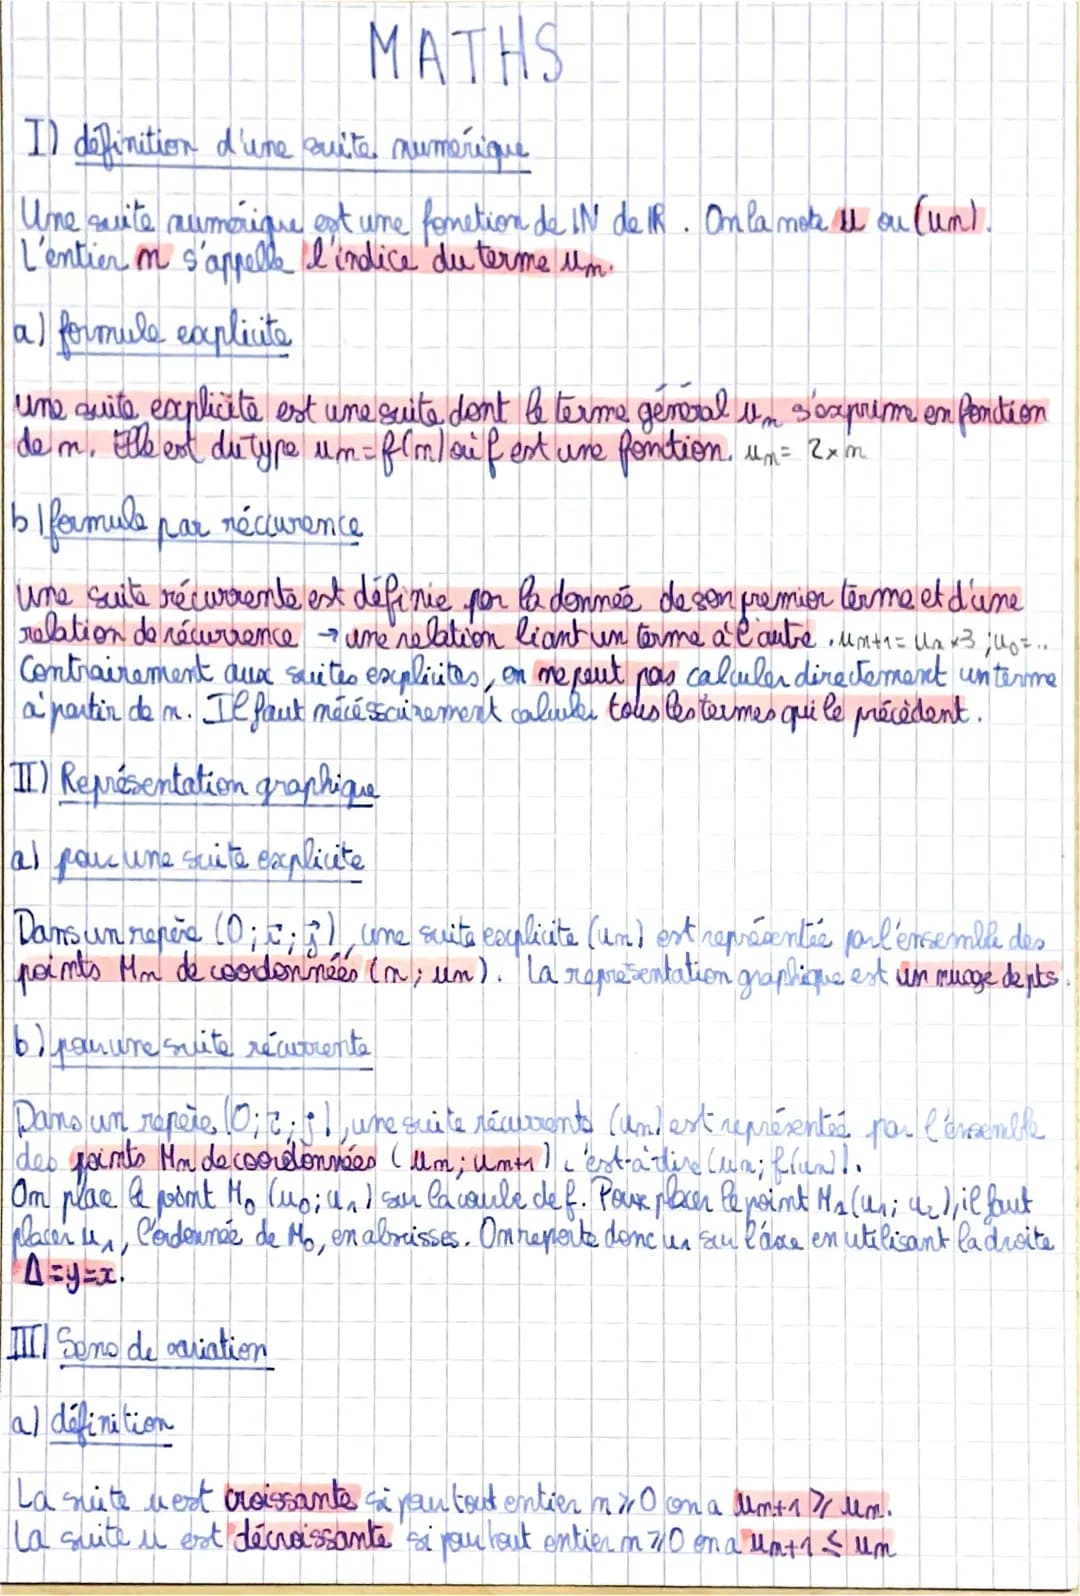 MATHS
I) définition d'une suite numérique
Une suite numérique est une fonction de IN de IR. On la note u ou (un).
L'entier n s'appelle l'indice du terme un.
a) formule explicite
une suite explicite est une suite dont le terme général un s'exprime en fonction
de n. Elle est du type un=f(n) où f est une fonction. un= 2xn
b) formule par réccurence
une suite récurrente est définie par la donnée de son premier terme et d'une
relation de récurrence → une relation liant un terme à l'autre. un+1= un x3 ; u0=...
Contrairement aux suites explicites, on ne peut pas calculer directement un terme
à partir de n. Il faut nécéssairement calculer tous les termes qui le précèdent.
II) Représentation graphique
a) pour une suite explicite
Dans un repère (O; i; j), une suite explicite (un) est représentée par l'ensemble des
points Mn de coordonnées (n; un). La représentation graphique est un nuage de pts.
b) pour une suite récurrente
Dans un repère (O; i; j), une suite récurrente (un) est représentée par l'ensemble
des points Mn de coordonnées (un; un+1) c'est-à-dire (un; f(un)).
On place le point M0 (u0; u1) sur la courbe de f. Pour placer le point M1 (u1; u2), il faut
placer u1, l'ordonnée de M0, en abscisses. On reporte donc u1 sur l'axe en utilisant la droite
Δ=y=x.
III) Sens de variation
a) définition
La suite u est croissante si pour tout entier n ⩾ 0 on a un+1 ⩾ un.
La suite u est décroissante si pour tout entier n ⩾ 0 on a un+1 ≤ un